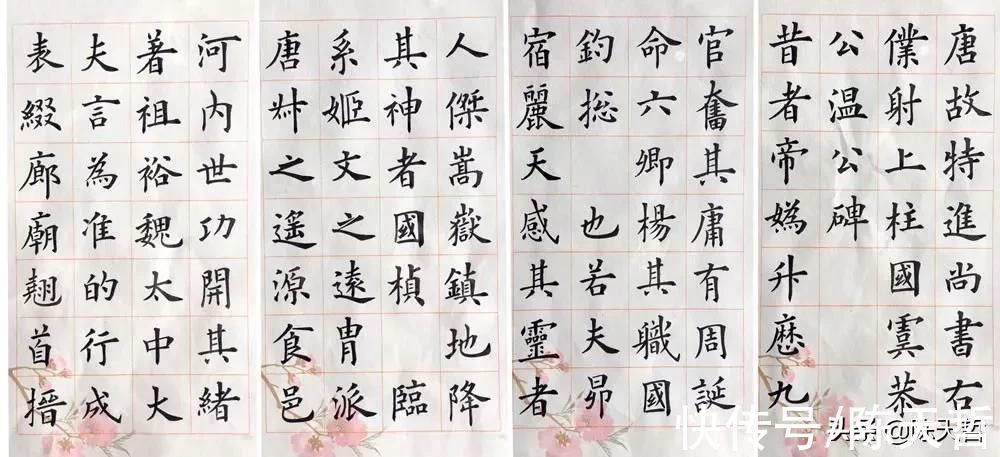 唐故特進尚書右
僕射上柱國虞恭
公温公碑
昔者帝媯升厯九
官奮其庸有周誕
命六卿楊其職國
釣揔 也若夫昴
宿麗天感其靈者
人傑嵩嶽鎮地降
其神者國楨 臨
系姬文之遠胄 派
唐叔之遥源食邑
河内世功開其緒
著祖裕魏太中大
夫言為准的行成
表綴廊廟翹首搢
快传号/陈天哲
头条 @陈天哲